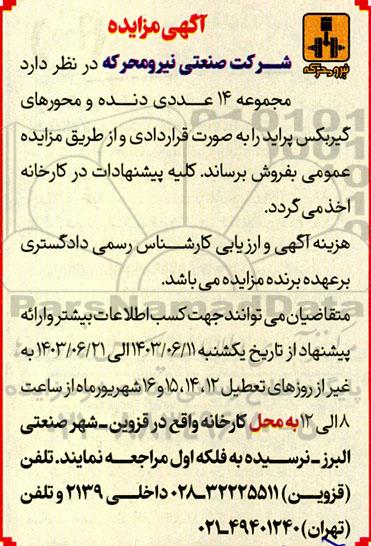 آگهی مزایده
شرکت صنعتی نیرومحرکه در نظر دارد
مجموعه ۱۴ عددی دنده و محورهای
گیربکس پراید را به صورت قراردادی و از طریق مزایده
عمومی بفروش برساند. کلیه پیشنهادات در کارخانه
اخذ می گردد.
هزینه آگهی و ارزیابی کارشناس رسمی دادگستری
برعهده برنده مزایده می باشد.
متقاضیان می توانند جهت کسب اطلاعات بیشتر و ارائه
پیشنهاد از تاریخ یکشنبه ۱۴۰۳/۰۶/۱۱ الی ۱۴۰۳/۰۶/۲۱ به
غیر از روزهای تعطیل ۱۲، ۱۴، ۱۵ و ۱۶ شهریور ماه از ساعت
۸ الی ۱۲ به محل کارخانه واقع در قزوین ـ شهر صنعتی
البرز ـ نرسیده به فلکه اول مراجعه نمایند. تلفن
(قزوین) ۳۲۲۲۵۵۱۱ـ۰۲۸ داخلی ۲۱۳۹ و تلفن
(تهران) ۴۹۴۰۱۲۴۰ـ۰۲۱
نیرومحرکه
ParsNamadData